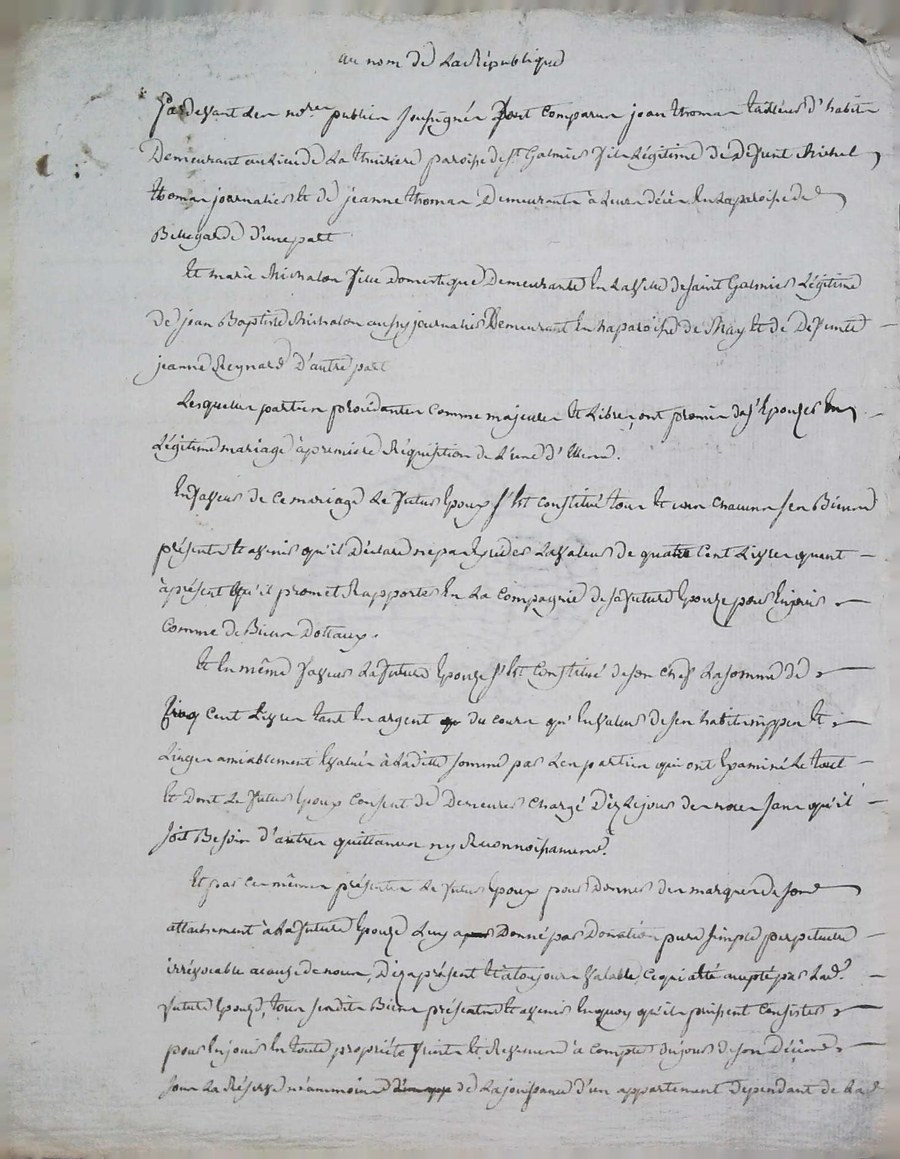 au nom de La République
Pardevant Les no.res publics soussignés sont comparus jean thomas tailleur d'habits
Demeurant au Lieu de La thuiliere paroisse de st Galmier fils Légitime de defunt Michel
thomas journalier et de jeanne thomas Demeurants à Leurs décès En La paroisse de
Bellegarde d'une part
Et marie Michalon fille Domestique Demeurante En La ville de saint Galmier Légitime
de jean Baptiste Michalon aussy journalier Demeurant En La paroisse de et de Defunte
jeanne Reynard D'autre part
Lesquelles parties procedantes comme majeures et Libres, ont promis de s'Epouzer En
Légitime mariage à premiere Réquisition de L'une d'Elles.
En faveur de ce mariage Le futur Epoux s'Est constitué tous et un chacuns ses Biens
présents et avenir qu'il Déclare ne pas Exceder La valeur de quatre Cent Livres quant
àprésent Et qu'il promet Rapporter En La Compagnie de sa future Epouze pour En jouir
comme de Biens Dottaux.
Et En même faveur La future Epouze s'Est Constitué de son chef La somme de
Cinq Cent Livres tant En argent du cours qu'En valeur de ses habits nippes et
Linges amiablement Evalués à Laditte somme par Les parties qui ont Examiné Le tout
Et Dont Le futur Epoux Consent de Demeurer chargé Dèz Le jour des noces sans qu'il
soit Besoin d'autres quittances ny Reconnoissances.
Et par ces mêmes présentes Le futur Epoux pour donner des marques de son
attachement à La future Epouze Luy a Donné par Donation pure simple perpetuelle
irrévocable a cause de noces, Dèz a présent Et à toujours valable, ce qui a été accepté par Lad.
future Epouze, tous sesdits Biens présents et avenir En quoy qu'ils puissent consister
pour En jouir En toute propriété fruits et Revenus à compter du jour de son Décès
sous La Réserve néanmoins de La jouissance d'un appartement dépendant de La